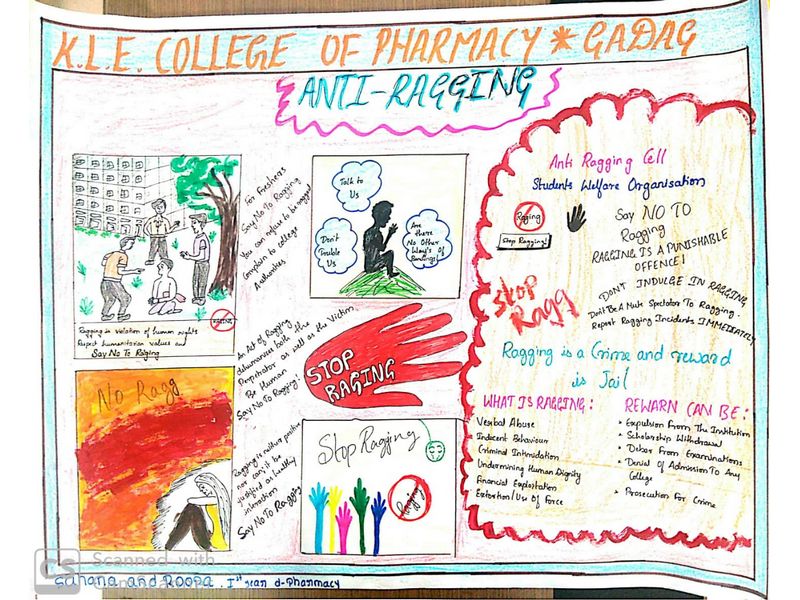 K.L.E. COLLEGE OF PHARMACY * GADAG
ANTI-RAGGING
RAGGING
Ragging is violation of human rights
Respect humanitarian values and
Say No To Raging
For Freshers
Say No To Ragging
You can refuse to be ragged
Complain to college
Authorities
Talk to
Us
Don't
Trouble
Us
Are
there
No Other
Way's of
An Act of Ragging
dehumanises both the
as well as the Victim
Human
Say No To Ragging!
STOP
RAGING
No Ragg
Ragging is neither positive
nor can it be
justified as healthy
interaction
Say No To Ragging
Stop Ragging
Ragging
Anti Ragging Cell
Students Welfare Organisation
Raging
Stop Ragging!
Say NO TO
Ragging
RAGGING IS A PUNISHABLE
OFFENCE!
Stop
Ragg
DON'T INDULGE IN RAGGING,
Don't Be A Mute Spectator To Ragging.
Report Ragging Incidents IMMEDIATELY
Ragging is a Crime and reward
is Jail
WHAT IS RAGGING:
Verbal Abuse
Indecent Behaviour
Criminal Intimidation
Undermining Human Dignity
Financial Exploitation
Extortion/Use Of Force
REWARN CAN BE:
• Expulsion From The Institution
• Scholarship Withdrawal
• Debar From Examinations
• Denial of Admission To Any
College
• Prosecution For Crime
CS Scanned with
Sahana and Roopa. Ist year d-Pharmacy